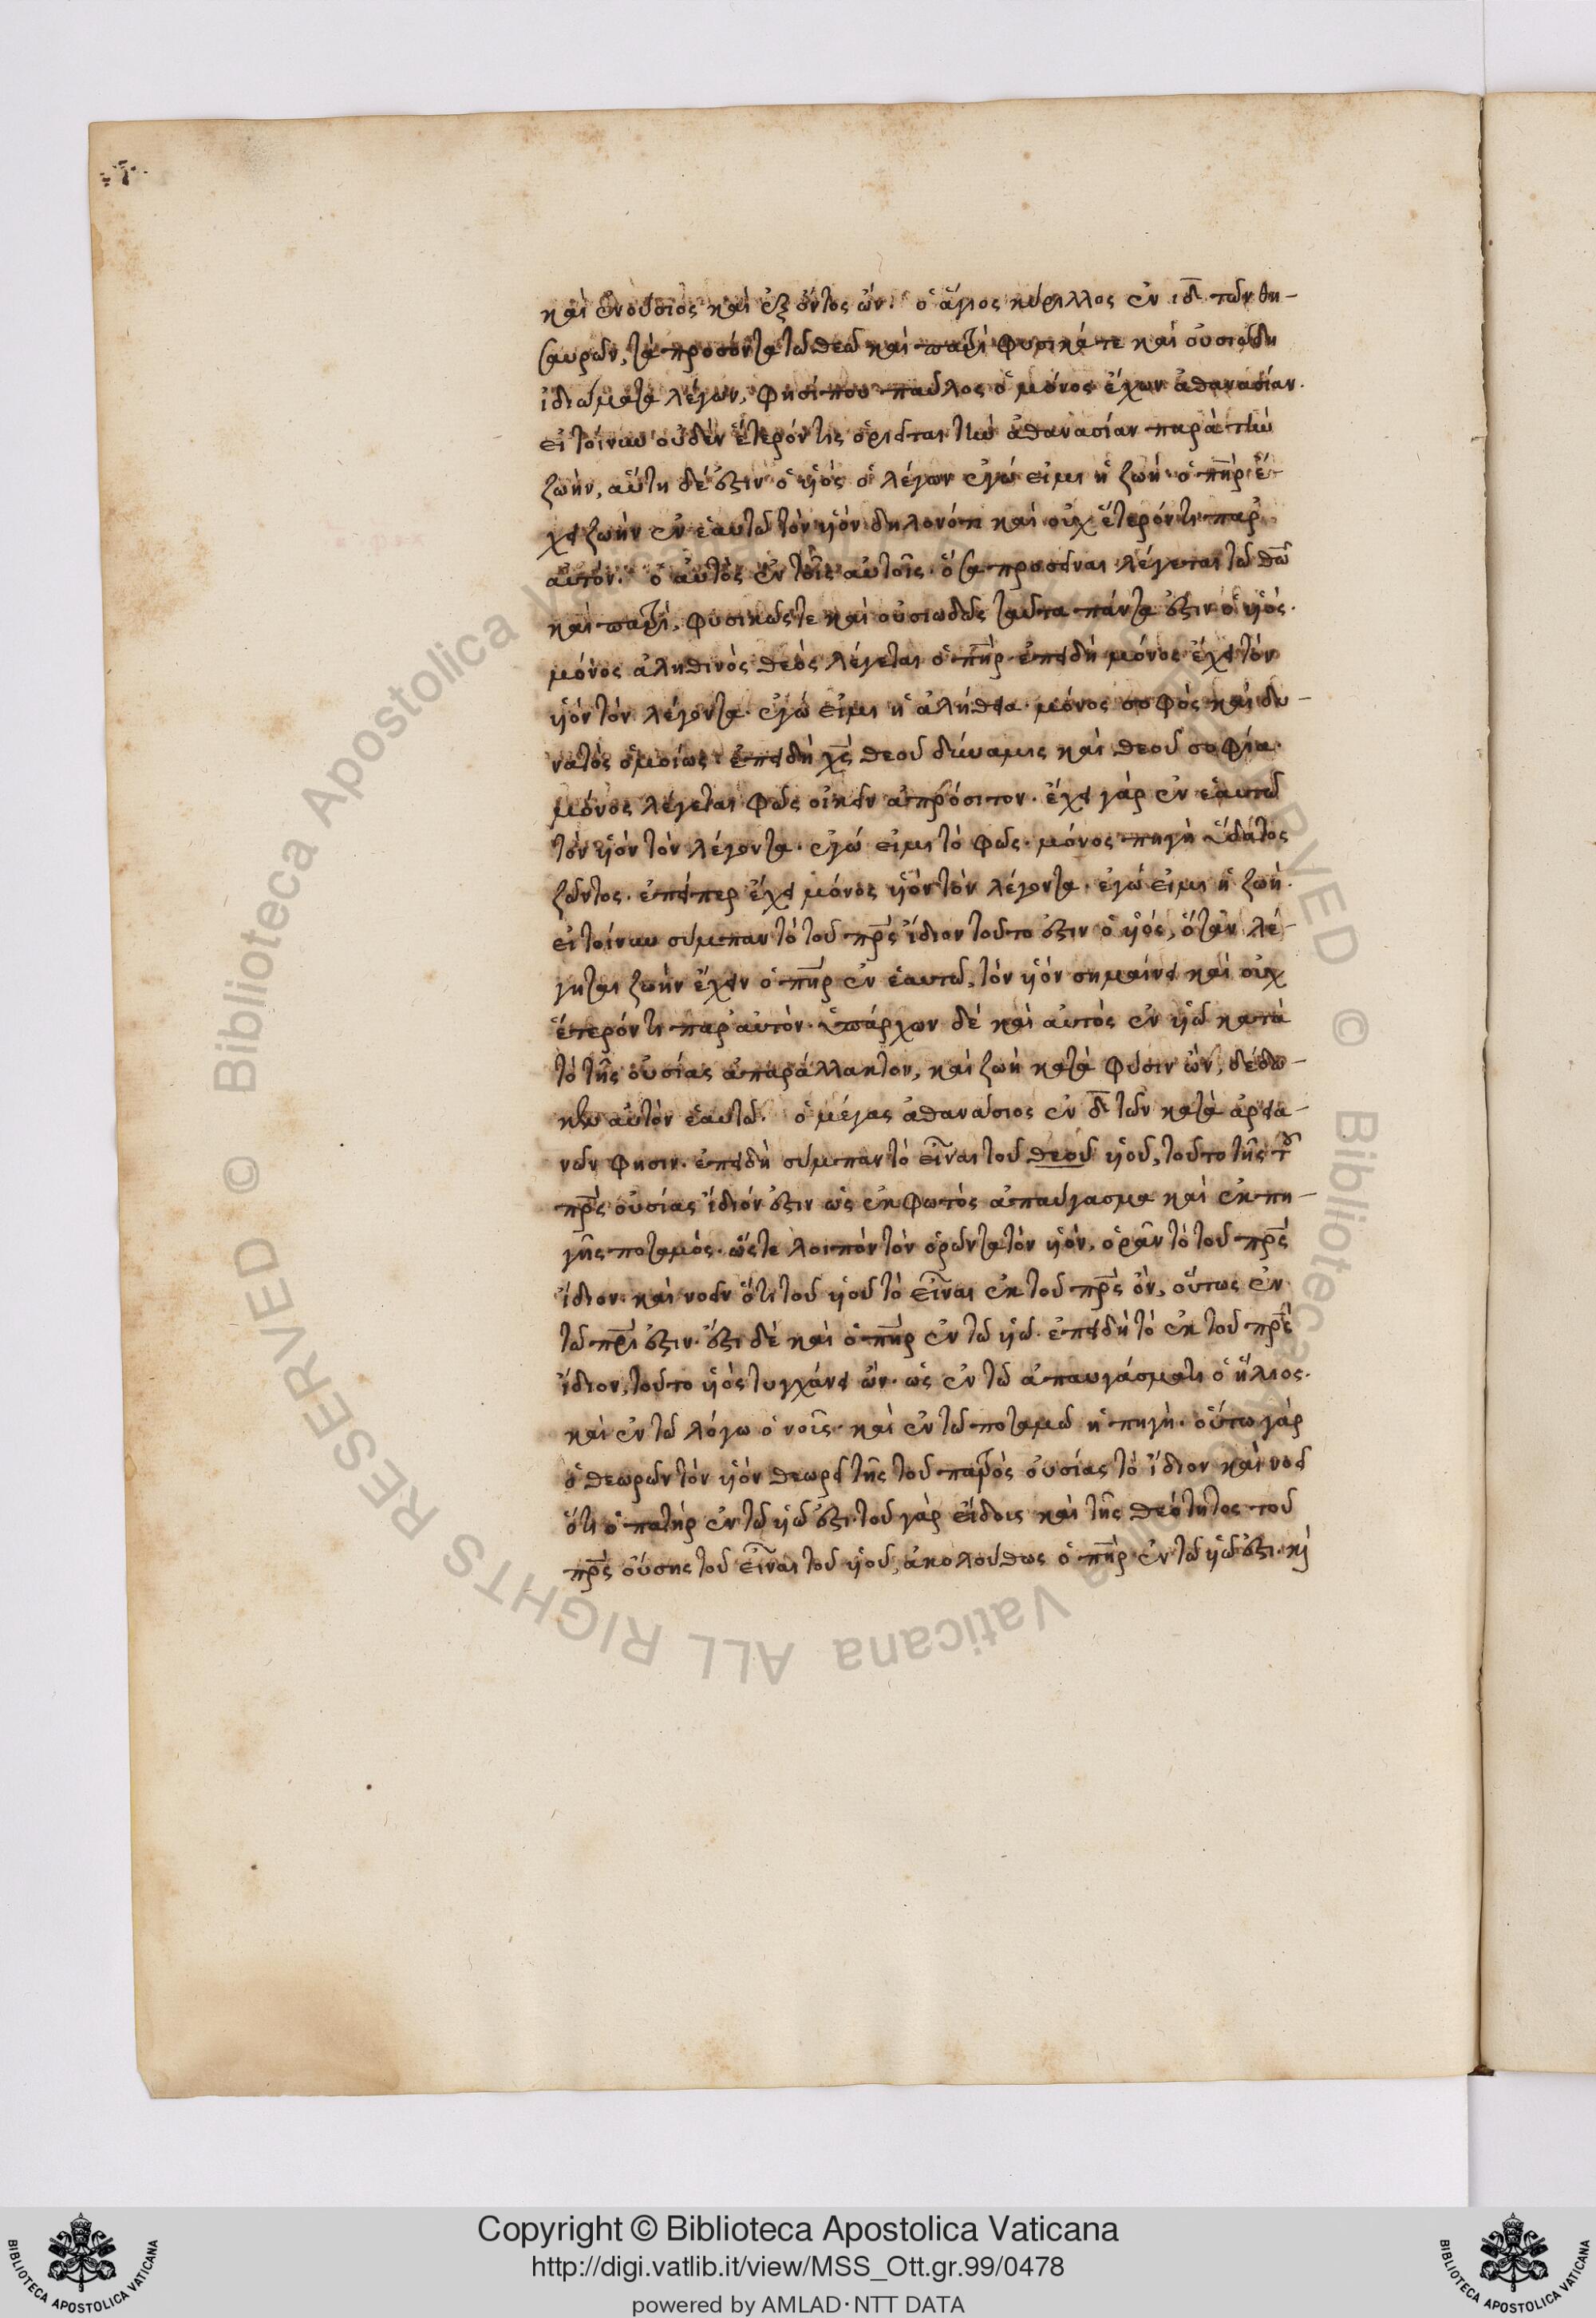 καὶ ἐνούσιος καὶ ἐξ ὄντος ὤν. ὁ ἅγιος κύριλλος ἐν ιδ̅ τῶν θη-
σαυρῶν, τὰ προσόντα τῶ θεῶ καὶ πατρὶ φυσικά τε καὶ οὐσιώδη
ἰδιώματα λέγων, φησί που παῦλος ὁ μόνος ἔχων ἀθανασίαν.
εἰ τοίνυν οὐδὲν ἕτερόν τις ὁρεῖται τὴν ἀθανασίαν παρὰ τὴν
ζωήν, αὕτη δέ ἐστιν ὁ υἱὸς ὁ λέγων ἐγώ εἰμι ἡ ζωή· ὁ πηρ ἔ-
χει ζωὴν ἐν ἑαυτῶ τὸν υἱὸν δηλονότι καὶ οὐχ ἕτερόν τι παρ'
αὐτόν. ὁ αὐτὸς ἐν τοῖς αὐτοῖς. ὅσα προσεῖναι λέγεται τῶ θῶ
καὶ πατρὶ, φυσικῶς τε καὶ οὐσιωδῶς ταῦτα πάντα ἐστιν ὁ υἱός.
μόνος ἀληθινὸς θεὸς λέγεται ὁ πηρ. ἐπειδὴ μόνος ἔχει τὸν
υἱὸν τὸν λέγοντα. ἐγώ εἰμι ἡ ἀλήθεια. μόνος σοφὸς καὶ δυ-
νατὸς ὁμοίως. ἐπειδὴ χς θεοῦ δύναμις καὶ θεοῦ σοφία.
μόνος λέγεται φῶς οἰκεῖν ἀπρόσιτον. ἔχει γὰρ ἐν ἑαυτῶ
τὸν υἱὸν τὸν λέγοντα. ἐγώ εἰμι τὸ φῶς. μόνος πηγὴ ὕδατος
ζῶντος. ἐπείπερ ἔχει μόνος υἱὸν τὸν λέγοντα. ἐγώ εἰμι ἡ ζωή.
εἰ τοίνυν σύμπαν τὸ τοῦ πρς ἴδιον τοῦτο ἐστιν ὁ υἱός, ὅταν λέ-
γηται ζωὴν ἔχειν ὁ πηρ ἐν ἑαυτῶ, τὸν υἱὸν σημαίνει καὶ οὐχ
ἕτερόν τι παρ' αὐτὸν. ὑπάρχων δὲ καὶ αὐτὸς ἐν υἱῶ κατὰ
τὸ τῆς οὐσίας ἀπαράλλακτον, καὶ ζωὴ κατὰ φύσιν ὤν, δέδω-
κεν αὐτὸν ἑαυτῶ. ὁ μέγας ἀθανάσιος ἐν δ̅ τῶν κατὰ ἀρεια-
νῶν φησιν. ἐπειδὴ σύμπαν τὸ εἶναι τοῦ θεοῦ υἱοῦ, τοῦτο τῆς τοῦ
πρς οὐσίας ἴδιόν ἐστιν ὡς ἐκ φωτὸς ἀπαύγασμα καὶ ἐκ πη-
γῆς ποταμός. ὥστε λοιπὸν τὸν ὁρῶντα τὸν υἱὸν, ὁρᾶν τὸ τοῦ πρς
ἴδιον. καὶ νοεῖν ὅτι τοῦ υἱοῦ τὸ εἶναι ἐκ τοῦ πρς ὂν, οὕτως ἐν
τῶ πρι ἐστιν. ἔστι δὲ καὶ ὁ πηρ ἐν τῶ υἱῶ. ἐπειδὴ τὸ ἐκ τοῦ πρς
ἴδιον, τοῦτο υἱὸς τυγχάνει ὤν. ὡς ἐν τῶ ἀπαυγάσματι ὁ ἥλιος.
καὶ ἐν τῶ λόγω ὁ νοῦς. καὶ ἐν τῶ ποταμῶ ἡ πηγή. οὕτω γὰρ
ὁ θεωρῶν τὸν υἱὸν θεωρεῖ τῆς τοῦ πατρὸς οὐσίας τὸ ἴδιον καὶ νοεῖ
ὅτι ὁ πατὴρ ἐν τῶ υἱῶ ἐστι. τοῦ γὰρ εἴδους καὶ τῆς θεότητος τοῦ
πρς οὔσης τοῦ εἶναι τοῦ υἱοῦ, ἀκολούθως ὁ πηρ ἐν τῶ υἱῶ ἐστι. κὶ
Copyright © Biblioteca Apostolica Vaticana
http://digi.vatlib.it/view/MSS_Ott.gr.99/0478
powered by AMLAD·NTT DATA